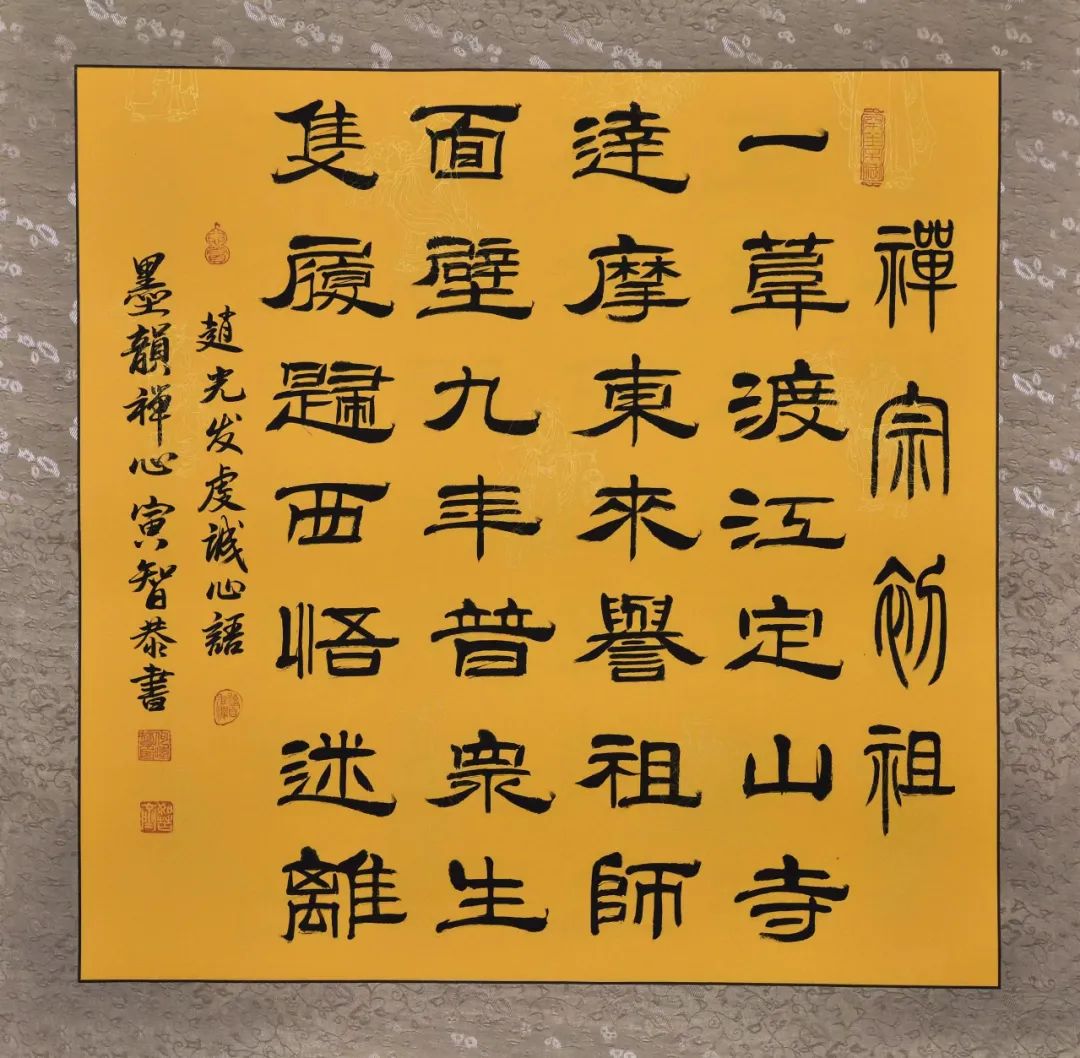 禪宗初祖
一葦渡江定山寺
達摩東來譽祖師
面壁九年普衆生
隻履歸西悟迷離
趙光发虔誠心語
墨韻禪心寅智恭書